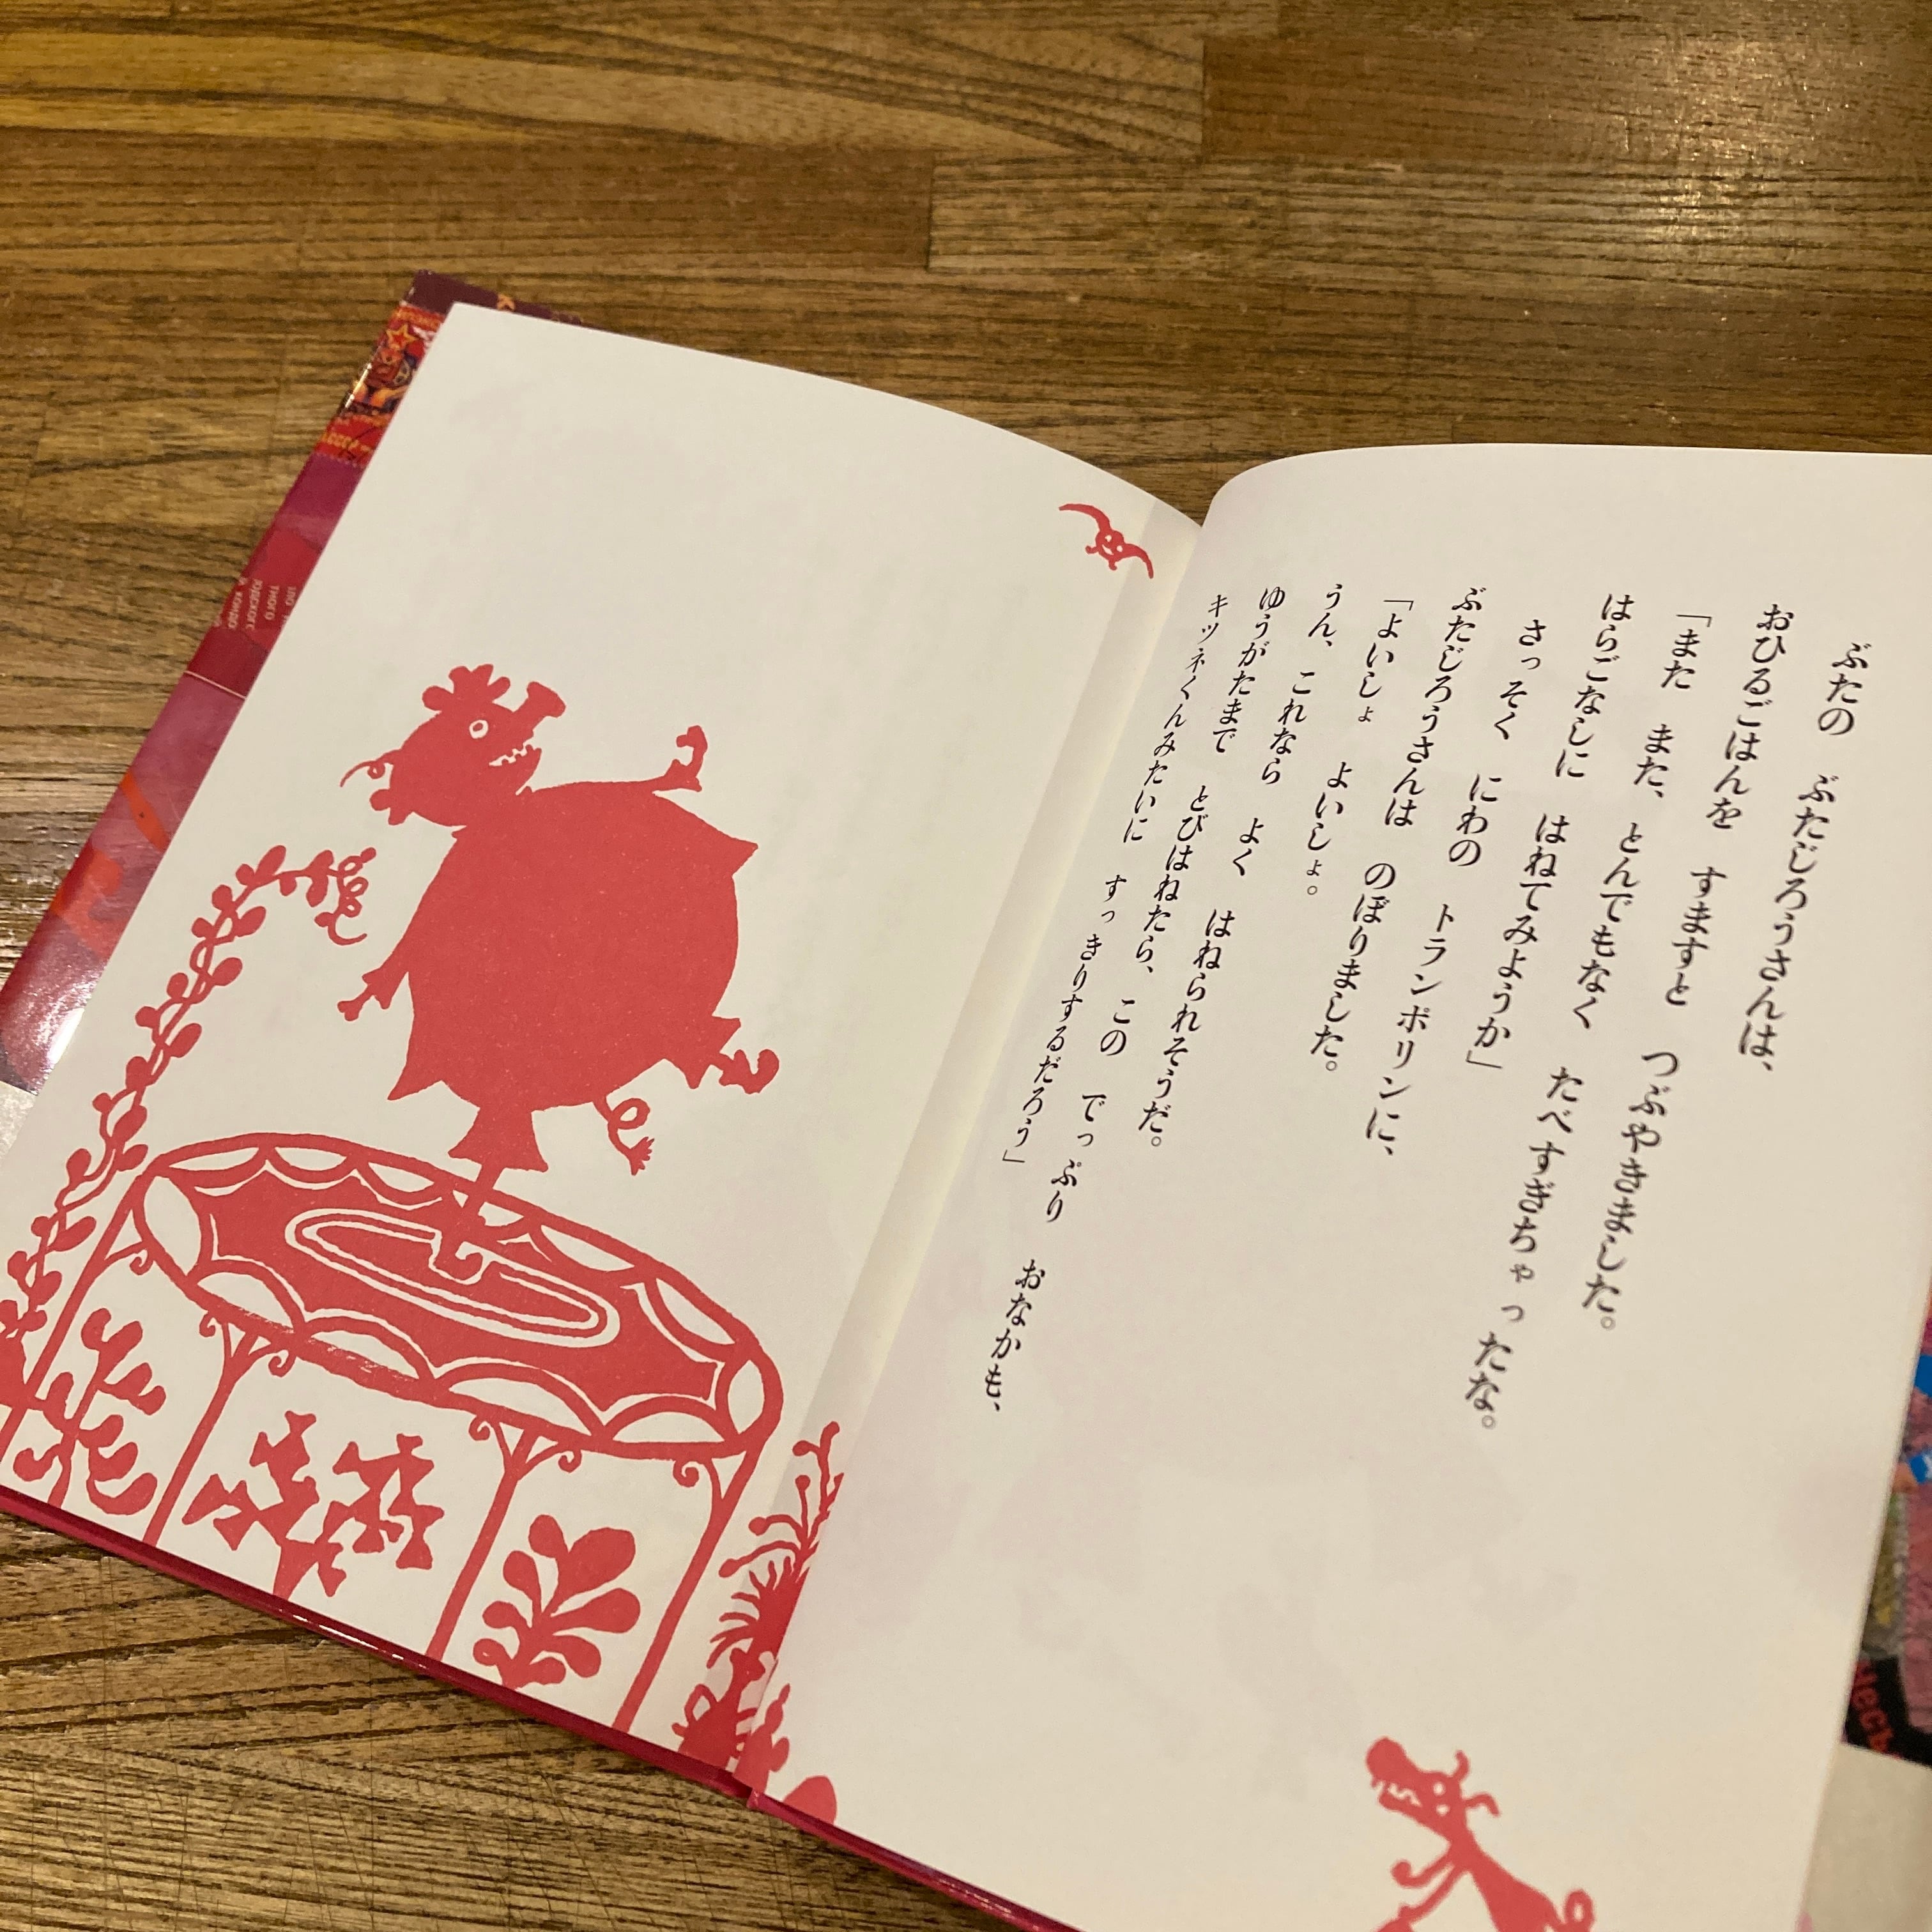 ぶたの　ぶたじろうさんは、
おひるごはんを　すますと　つぶやきました。
「また　また、とんでもなく　たべすぎちゃったな。
はらごなしに　はねてみようか」
さっそく　にわの　トランポリンに、
ぶたじろうさんは　のぼりました。
「よいしょ　よいしょ。
うん、これなら　よく　はねられそうだ。
ゆうがたまで　とびはねたら、この　でっぷり　おなかも、
キツネくんみたいに　すっきりするだろう」